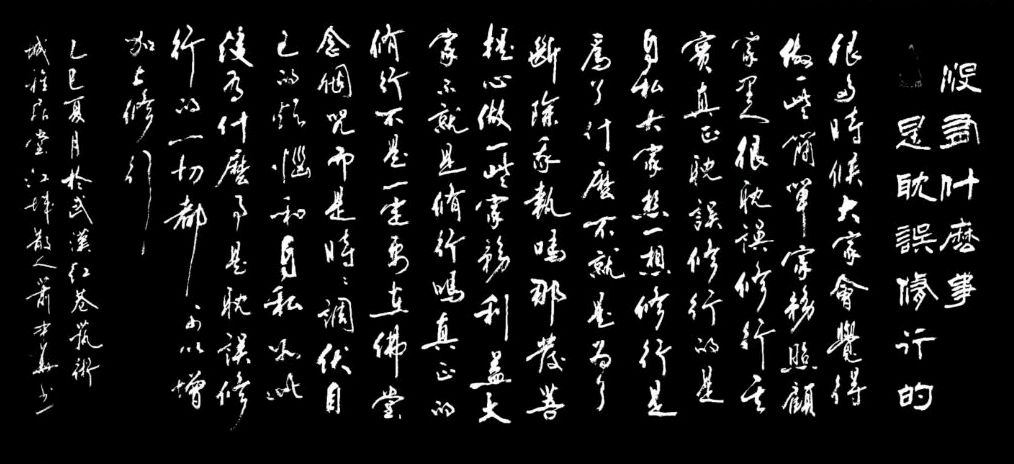 沒有什麽事
是耽誤修行的
很多時候大家會覺得
做一些簡單家務照顧
家里人很耽誤修行其
實真正耽誤修行的是
自私大家想一想修行是
爲了什麽不就是为了
斷除我執嗎那發菩
提心做一些家務利益大
家不就是修行嗎真正的
修行不是一定要在佛堂
念個咒而是時時調伏自
己的煩惱和自私如此
後有什麽事是耽誤修
行的一切都可以增
加上修行
乙巳夏月於武漢红巷藝術
城雅堂江城散人蕭书